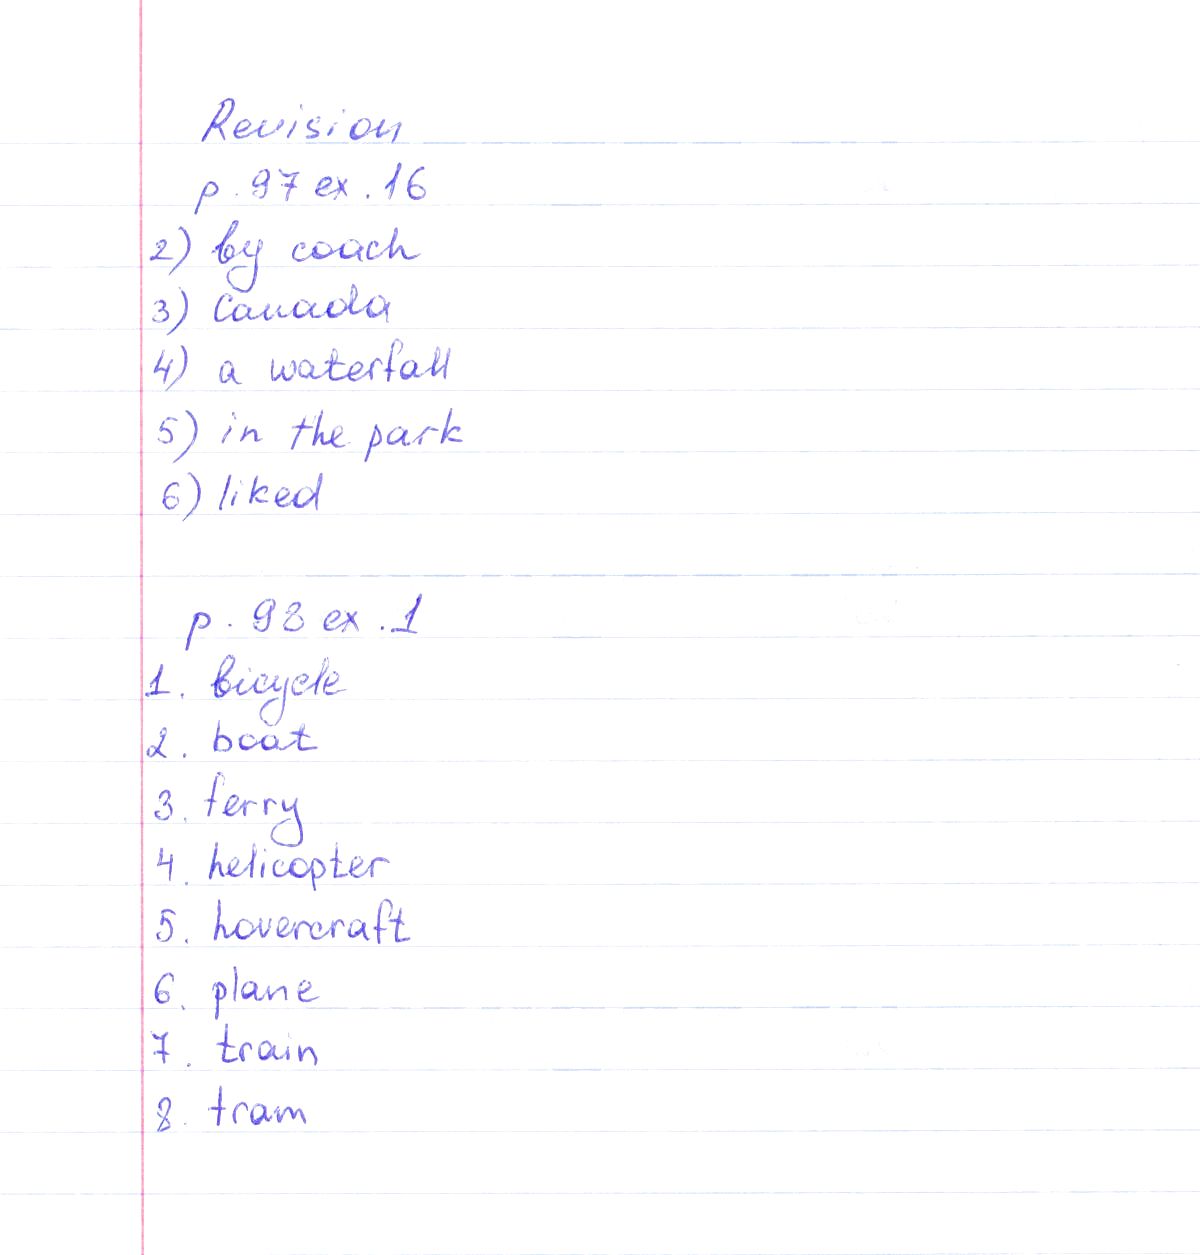 Revision
p. 97 ex. 16
2) by coach
3) Canada
4) a waterfall
5) in the park
6) liked
p. 98 ex. 1
1. bicycle
2. boat
3. ferry
4. helicopter
5. hovercraft
6. plane
7. train
8. tram